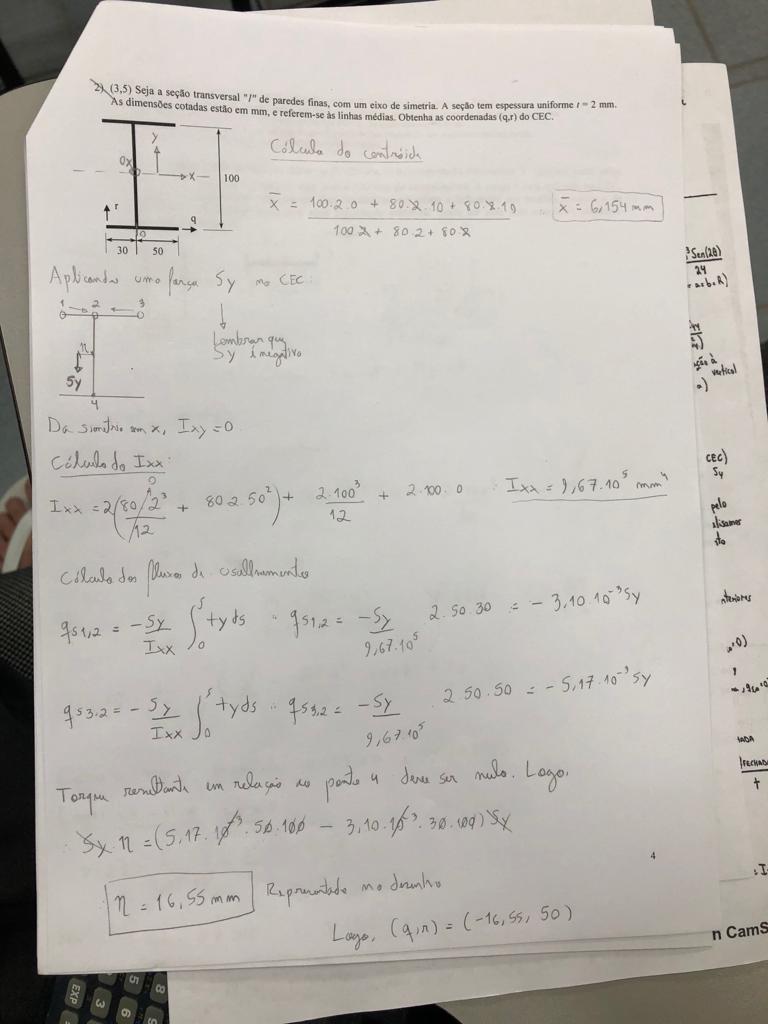 2) (3,5) Seja a seção transversal "I" de paredes finas, com um eixo de simetria. A seção tem espessura uniforme t = 2 mm.
As dimensões cotadas estão em mm, e referem-se às linhas médias. Obtenha as coordenadas (q,r) do CEC.
Cálculo do centróide
y
Ox
x
100
r
q
0
30 50
x̄ = (100.2.0 + 80.2.10 + 80.2.10) / (100.2 + 80.2 + 80.2)
x̄ = 6,154 mm
Aplicando uma força Sy no CEC:
1 2 3
η
Sy
4
Lembrar que
Sy é negativo
Da simetria em x, Ixy = 0
Cálculo do Ixx:
0
Ixx = 2(80.2³/12 + 80.2.50²) + 2.100³/12 + 2.100.0 ∴ Ixx = 9,67.10⁵ mm⁴
Cálculo dos fluxos de cisalhamento
qs1,2 = -Sy/Ixx ∫₀ˢ tyds ∴ qs1,2 = -Sy/9,67.10⁵ . 2.50.30 = -3,10.10⁻³Sy
qs3,2 = -Sy/Ixx ∫₀ˢ tyds ∴ qs3,2 = -Sy/9,67.10⁵ . 2.50.50 = -5,17.10⁻³Sy
Torque resultante em relação ao ponto 4 deve ser nulo. Logo,
Sy.η = (5,17.10⁻³.50.100 - 3,10.10⁻³.30.100)Sy
4
η = 16,55 mm Representado no desenho
Logo, (q,r) = (-16,55, 50)
Sen(2θ)
24
vertical
a)
CEC)
Sy
pelo
nteriores
FECHADA
t
n CamS
EXP
3
6
5
8